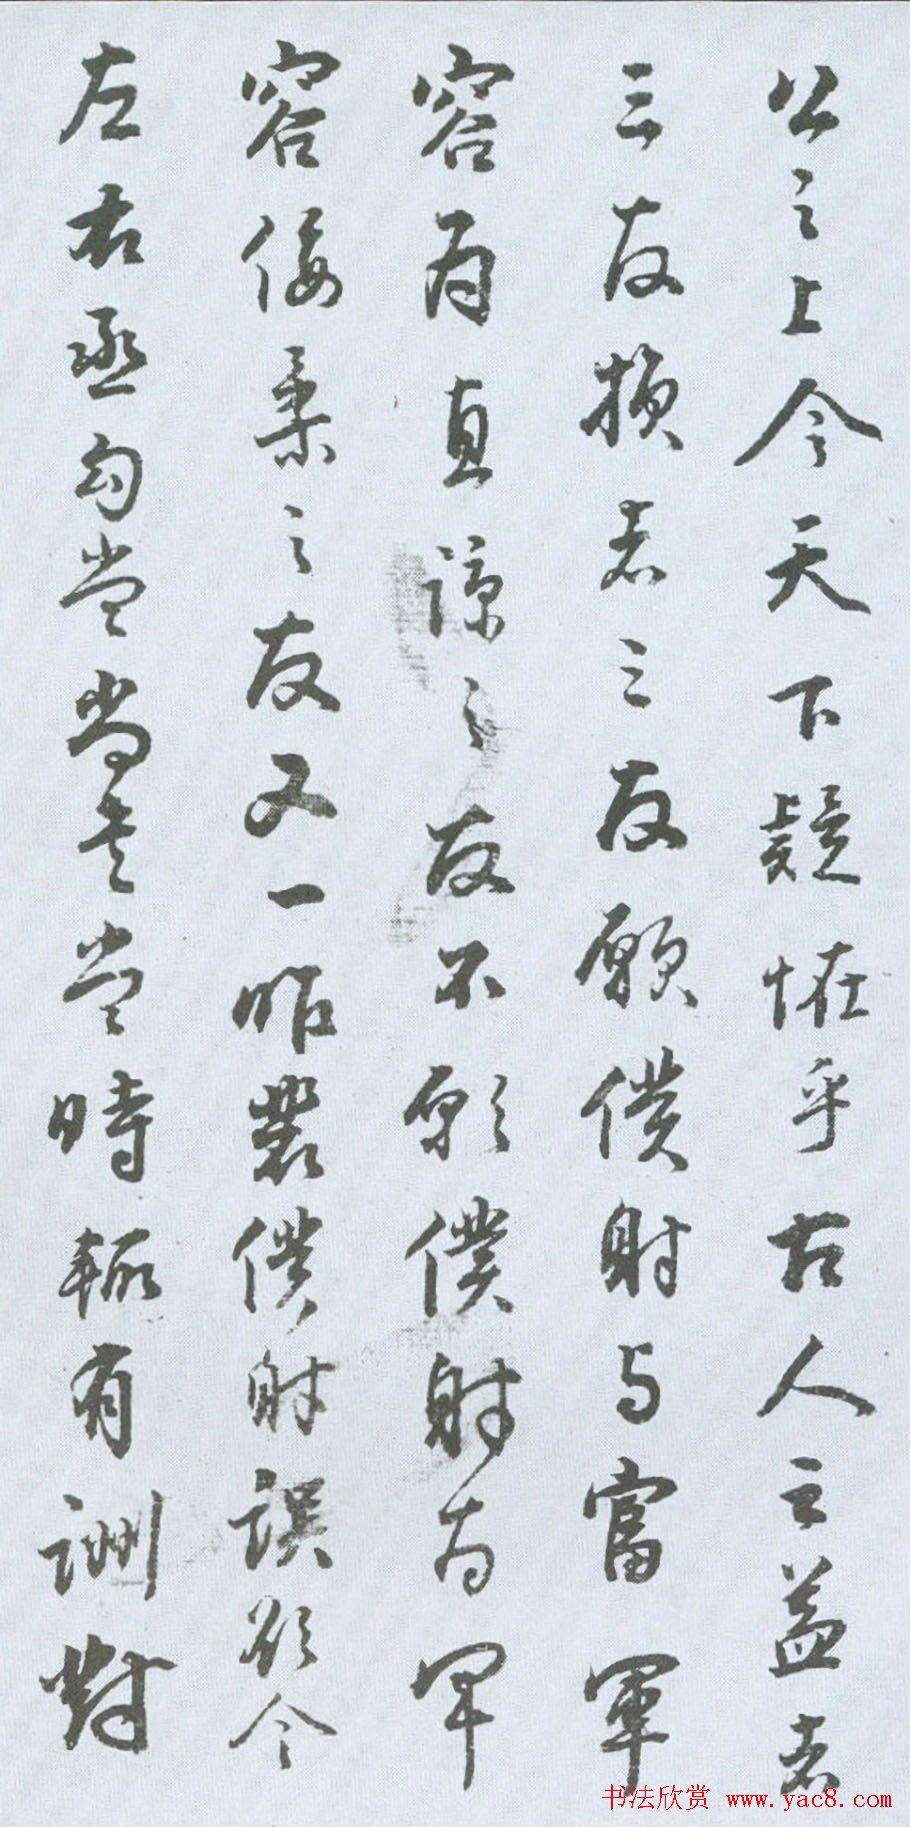 公之上今天下疑恠乎古人云益者
三友損者三友願僕射与富軍
容為直諒之友不願僕射為軍
容佞柔之友又一昨裴僕射誤欲令
左右丞勾當尚書當時輒有詶對
书法欣赏 www.yac8.com